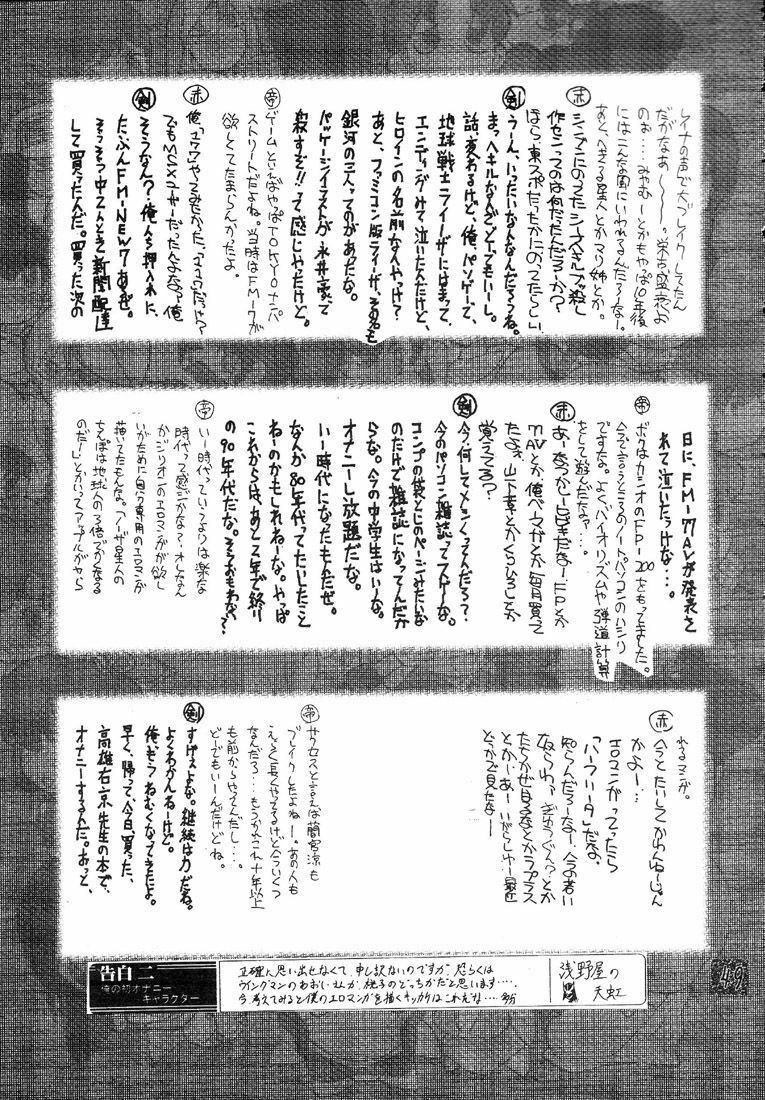 レイナの声で大ブレイクしてたん
だがなあ〜〜。栄古盛衰よ
のぉ…みやむーとかもやっぱ10年後
にはこんな風にいわれるんだろーなー。
あと、へきる星人とかマリ姉とか。
赤
シンブンにのってたシースヘキルブッ殺し
作センつのは何だったんだろーか？
ほら、東スポだったかにのってたらしい
剣
うーん、いったいなんなんだろうね。
まっ、ヘキルなんざどーでもいーし。
話、変わるけど、俺、パソゲーで、
地球戦士ライーザにはまって、
エンディングみて泣いたんだけど、
ヒロインの名前なんやっけ？
あと、ファミコン版ライーザ、その名も
銀河の三人ってのがあったな。
パッケージイラストが永井豪で
殺すぞ!!って感じやったけど。
帝
ゲームといえばやっぱTOKYOナンパ
ストリートだよね。当時はFM-7が
欲しくてたまらんかったよ。
赤
俺「ユウワク」やってみたかった。
でもMSXユーザーだったんよなー、俺
剣
そうなん？俺んち押入れに、
たぶんFM-NEW7あるぜ。
そうそう中二んとき、新聞配達
して買ったんだ。買った次の
日に、FM-77AVが発表さ
れて泣いたっけな…。
帝
ボクはカシオのFP-200をもってました。
今で言うところのノートパソコンのハシリ
ですな。よく、バイオリズムや弾道計算
をして遊んだだなァ…。
赤
あー、なつかしーひびきだなー、FPとか
77AVとか、俺ベーマガとか毎月買って
たよお、山下章とかくらひろしとか
覚えてるっ？
剣
今、何してメシくってんだろ？
今のパソコン雑誌ってスゲーな。
コンプの袋とじのページみたいな
のだけで雑誌になってんだか
らな。今の中学生はいーな。
オナニーし放題だな。
いー時代になったもんだぜ。
なんか80年代ってたいしたこと
ねーのかもしれねーな。やっぱ
これからは、あと2年で終り
の90年代だな。そうおもわね？
帝
いー時代っていうよりは楽な
時代って感じかな？オレなん
かジリオンのエロマンガが欲し
いがために自分専用のエロマンガ
描いてたもんな。ノーザ星人の
ちんぽは地球人の3倍づつくなる
のだ！とかいってアップルがやら
れるマンガ。
赤
今とたいしてかわんねーじゃん
かよー…
エロマンガってったら
「ハーフリータ」だろな
知らんだろーなー、今の若い
奴らわ。ぎゅわんぐ？とか
たちかぜ見るなとかラプラス
とか…あーいがらしゆー最近
どっかで見たなー
帝
サクセスと言えば蘭宮涼も
ブレイクしたよねー。あの人も
えらく長くやってるけど今いくつ
なんだろ…もうかれこれ十年以上
も前からやってんだし…。
どーでもいーんだけどね。
剣
すげえよな。継続は力だね。
よくわかんねーけど。
俺、もうねむくなってきたよ。
早く帰って、今日買った、
高雄右京先生の本で、
オナニーするんだ。おっと、
告白二
俺の初オナニー
キャラクター
正確に思い出せなくて、申し訳ないのですが、恐らくは
ウイングマンのあおいさんか、桃子のどっちかだと思います…。
今考えてみると僕のエロマンガを描くキッカケはこれだな…多分
浅野屋の
天虹
49